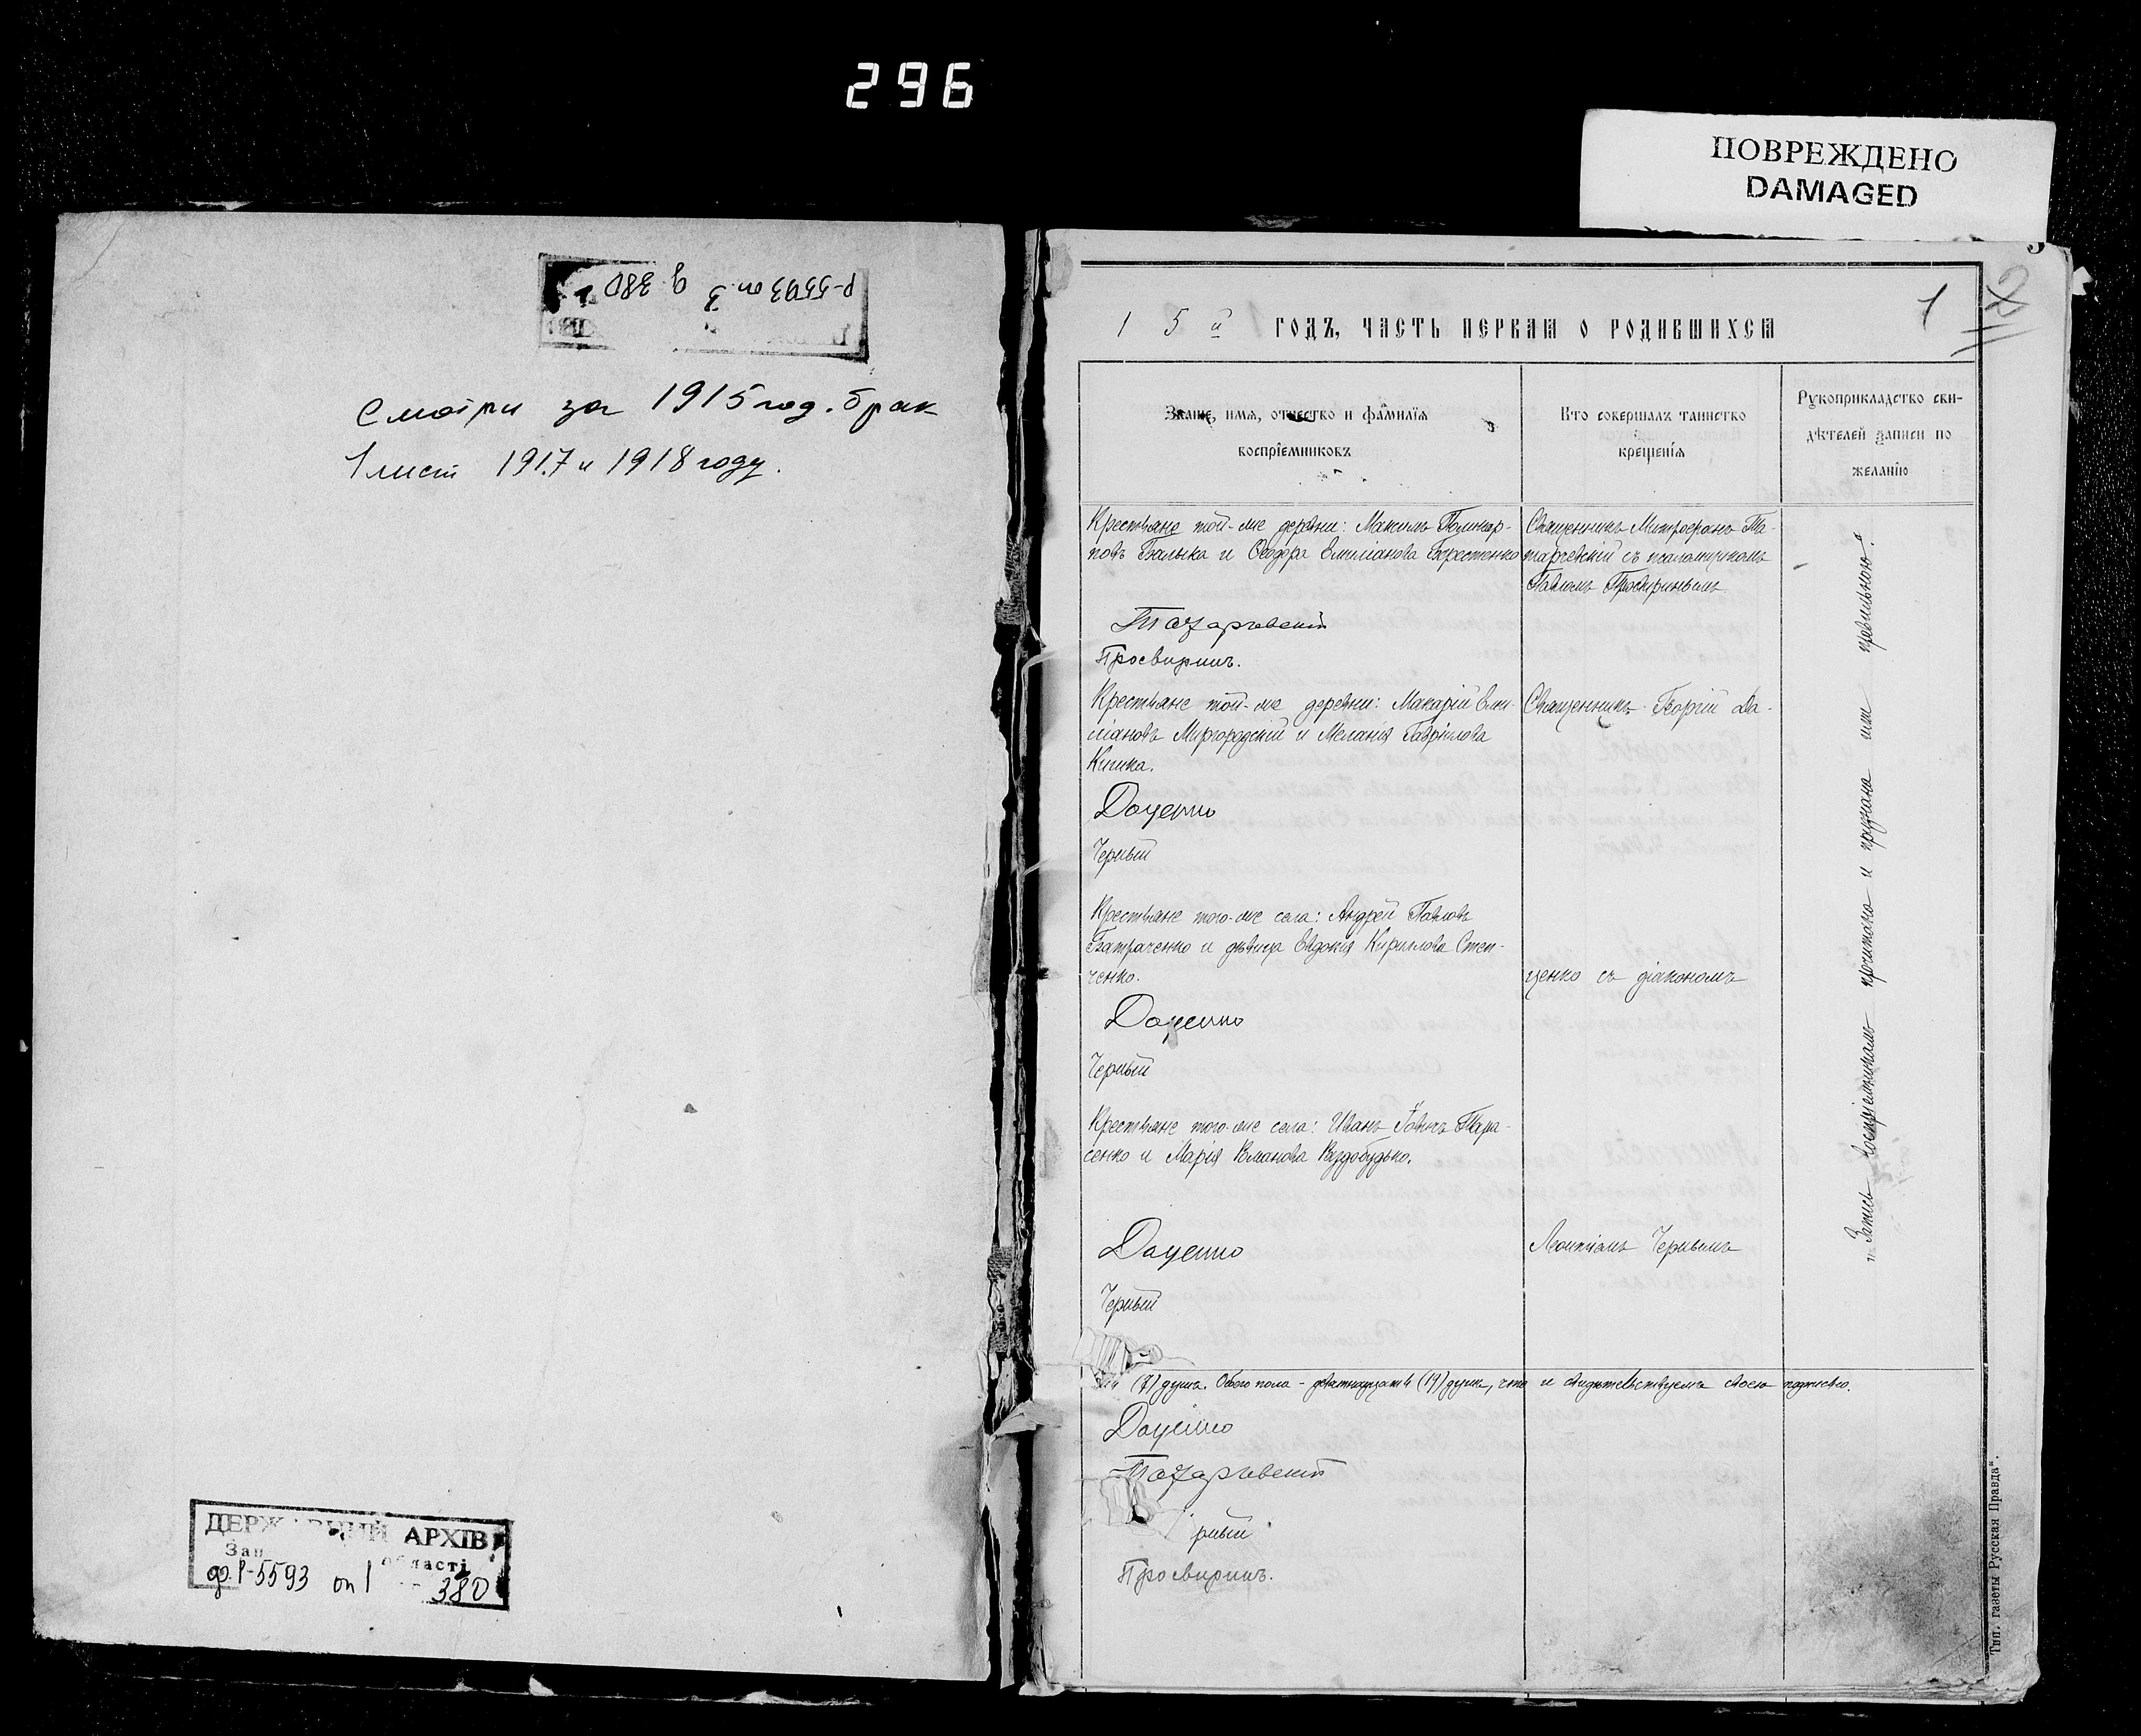 296
ПОВРЕЖДЕНО
DAMAGED
Р-5593 оп 3 д 380
Смотри за 1915 год. брак
1 лист 1917 и 1918 году.
ДЕРЖАВНИЙ АРХІВ
Зап області
ф. Р-5593 оп 1 380
1
1 5 й ГОДЪ, ЧАСТЬ ПЕРВАЯ О РОДИВШИХСЯ
Званіе, имя, отчество и фамилія
воспріемниковъ
Кто совершалъ таинство
крещенія
Рукоприкладство сви-
дѣтелей записи по
желанію
Крестьяне той-же деревни: Максимъ Поликар-
повъ Балыка и Ѳеодора Емиліанова Берестенко
Татарчевскій
Просвиринъ.
Священникъ Митрофанъ Та-
тарчевскій съ псаломщикомъ
Павломъ Просвиринымъ
Крестьяне той-же деревни: Макарій Еми-
ліановъ Миргородскій и Меланія Гавріилова
Кишка.
Доценко
Черный
Священникъ Георгій До-
Крестьяне того-же села: Андрей Павловъ
Батраченко и дѣвица Евдокія Кириллова Степ-
ченко.
Доценко
Черный
ценко съ діакономъ
Крестьяне того-же села: Иванъ Іовинъ Тара-
сенко и Марія Романова Роздобудько.
Доценко
Черный
Леонтіемъ Чернымъ
"Запись воспріемникамъ прочитана и признана ими правильною".
(7) душъ. Обоего пола - девятнадцать (19) душъ, что и свидѣтельствуемъ своею подписью.
Доценко
Татарчевскій
рный
Просвиринъ.
Тип. газеты Русская Правда“.